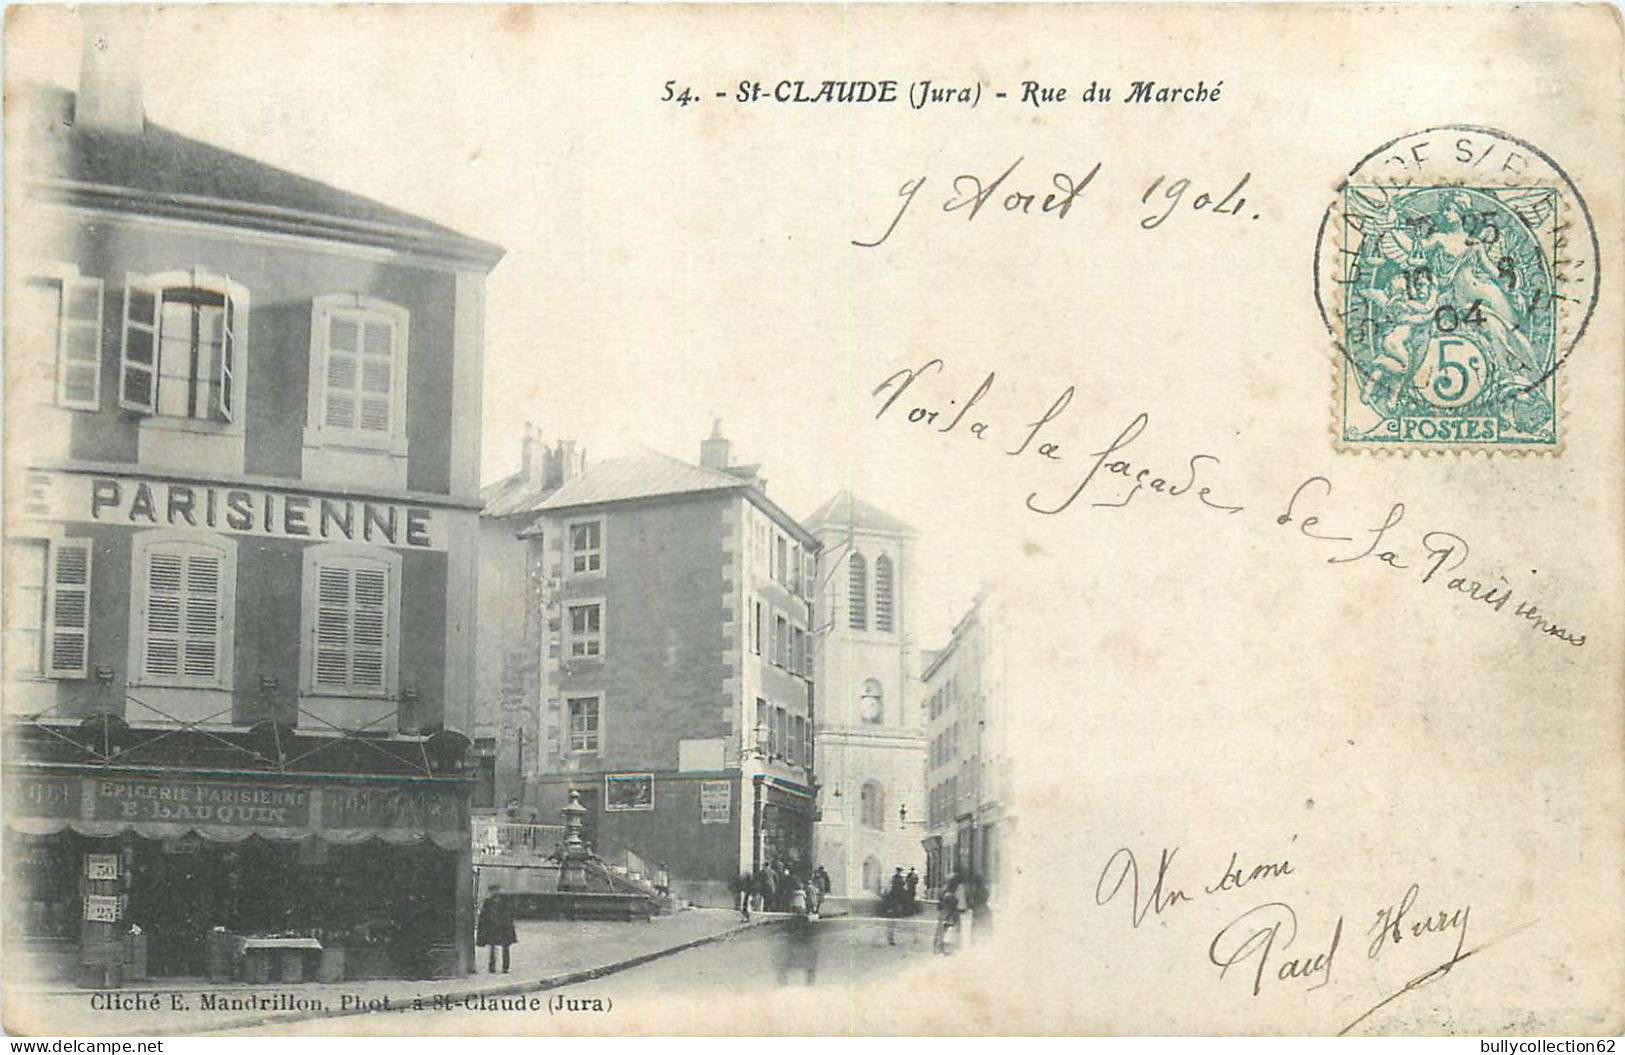 54. - St-CLAUDE (Jura) - Rue du Marché
9 Aout 1904.
ST CLAUDE S/ BIENNE
25
10 8
04
5c
POSTES
Voila la façade de la Parisienne
Un ami
Paul Hury
E PARISIENNE
EPICERIE PARISIENNE
E. LAUQUIN
50
25
Cliché E. Mandrillon, Phot., à St-Claude (Jura)
bullycollection62